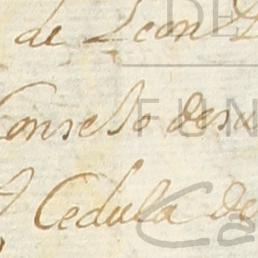 de Leon
Consejo desu
Cedula de